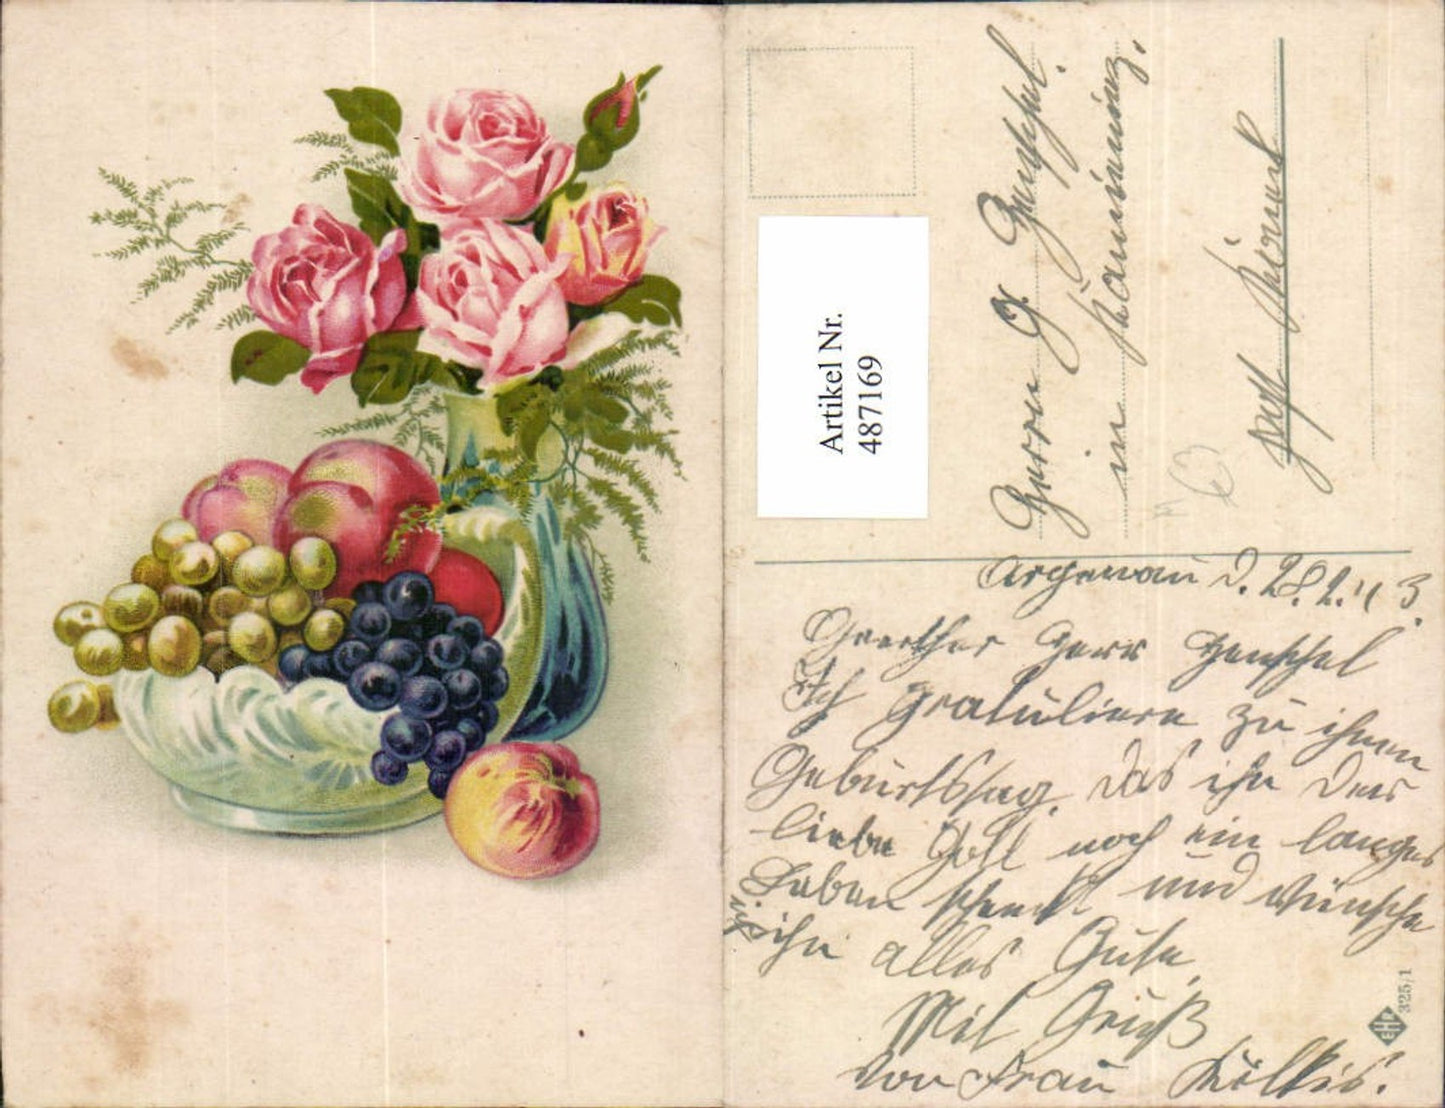 Artikel Nr.
487169
Herrn G. Henschel.
in Kaisering.
Post
Argenau d. 28.2.43.
Geerther Herr Henschel
Ich gratuliere zu ihren
Geburtstag. das ihn der
liebe Gott noch ein langes
Leben schenkt und wünsche
ich
ihn alles Gute.
Mit Gruß
von Frau
EHK
325/1